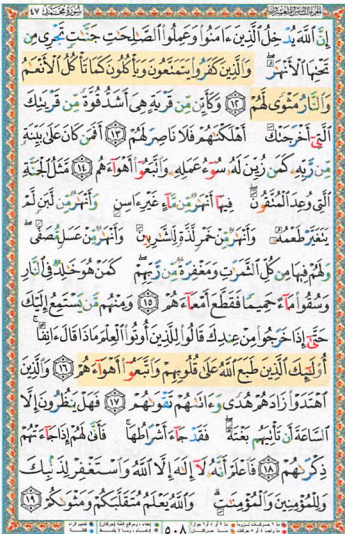 الجزء السادس والعشرون سورة محمد ٤٧
إِنَّ ٱللَّهَ يُدۡخِلُ ٱلَّذِينَ ءَامَنُواْ وَعَمِلُواْ ٱلصَّٰلِحَٰتِ جَنَّٰتٖ تَجۡرِي مِن
تَحۡتِهَا ٱلۡأَنۡهَٰرُۖ وَٱلَّذِينَ كَفَرُواْ يَتَمَتَّعُونَ وَيَأۡكُلُونَ كَمَا تَأۡكُلُ ٱلۡأَنۡعَٰمُ
وَٱلنَّارُ مَثۡوٗى لَّهُمۡ ١٢ وَكَأَيِّن مِّن قَرۡيَةٍ هِيَ أَشَدُّ قُوَّةٗ مِّن قَرۡيَتِكَ
ٱلَّتِيٓ أَخۡرَجَتۡكَ أَهۡلَكۡنَٰهُمۡ فَلَا نَاصِرَ لَهُمۡ ١٣ أَفَمَن كَانَ عَلَىٰ بَيِّنَةٖ
مِّن رَّبِّهِۦ كَمَن زُيِّنَ لَهُۥ سُوٓءُ عَمَلِهِۦ وَٱتَّبَعُوٓاْ أَهۡوَآءَهُم ١٤ مَّثَلُ ٱلۡجَنَّةِ
ٱلَّتِي وُعِدَ ٱلۡمُتَّقُونَۖ فِيهَآ أَنۡهَٰرٞ مِّن مَّآءٍ غَيۡرِ ءَاسِنٖ وَأَنۡهَٰرٞ مِّن لَّبَنٖ لَّمۡ
يَتَغَيَّرۡ طَعۡمُهُۥ وَأَنۡهَٰرٞ مِّنۡ خَمۡرٖ لَّذَّةٖ لِّلشَّٰرِبِينَ وَأَنۡهَٰرٞ مِّنۡ عَسَلٖ مُّصَفّٗىۖ
وَلَهُمۡ فِيهَا مِن كُلِّ ٱلثَّمَرَٰتِ وَمَغۡفِرَةٞ مِّن رَّبِّهِمۡۖ كَمَنۡ هُوَ خَٰلِدٞ فِي ٱلنَّارِ
وَسُقُواْ مَآءً حَمِيمٗا فَقَطَّعَ أَمۡعَآءَهُمۡ ١٥ وَمِنۡهُم مَّن يَسۡتَمِعُ إِلَيۡكَ
حَتَّىٰٓ إِذَا خَرَجُواْ مِنۡ عِندِكَ قَالُواْ لِلَّذِينَ أُوتُواْ ٱلۡعِلۡمَ مَاذَا قَالَ ءَانِفًاۚ
أُوْلَٰٓئِكَ ٱلَّذِينَ طَبَعَ ٱللَّهُ عَلَىٰ قُلُوبِهِمۡ وَٱتَّبَعُوٓاْ أَهۡوَآءَهُمۡ ١٦ وَٱلَّذِينَ
ٱهۡتَدَوۡاْ زَادَهُمۡ هُدٗى وَءَاتَىٰهُمۡ تَقۡوَىٰهُمۡ ١٧ فَهَلۡ يَنظُرُونَ إِلَّا
ٱلسَّاعَةَ أَن تَأۡتِيَهُم بَغۡتَةٗۖ فَقَدۡ جَآءَ أَشۡرَاطُهَاۚ فَأَنَّىٰ لَهُمۡ إِذَا جَآءَتۡهُمۡ
ذِكۡرَىٰهُمۡ ١٨ فَٱعۡلَمۡ أَنَّهُۥ لَآ إِلَٰهَ إِلَّا ٱللَّهُ وَٱسۡتَغۡفِرۡ لِذَنۢبِكَ
وَلِلۡمُؤۡمِنِينَ وَٱلۡمُؤۡمِنَٰتِۗ وَٱللَّهُ يَعۡلَمُ مُتَقَلَّبَكُمۡ وَمَثۡوَىٰكُمۡ ١٩
٥٠٨